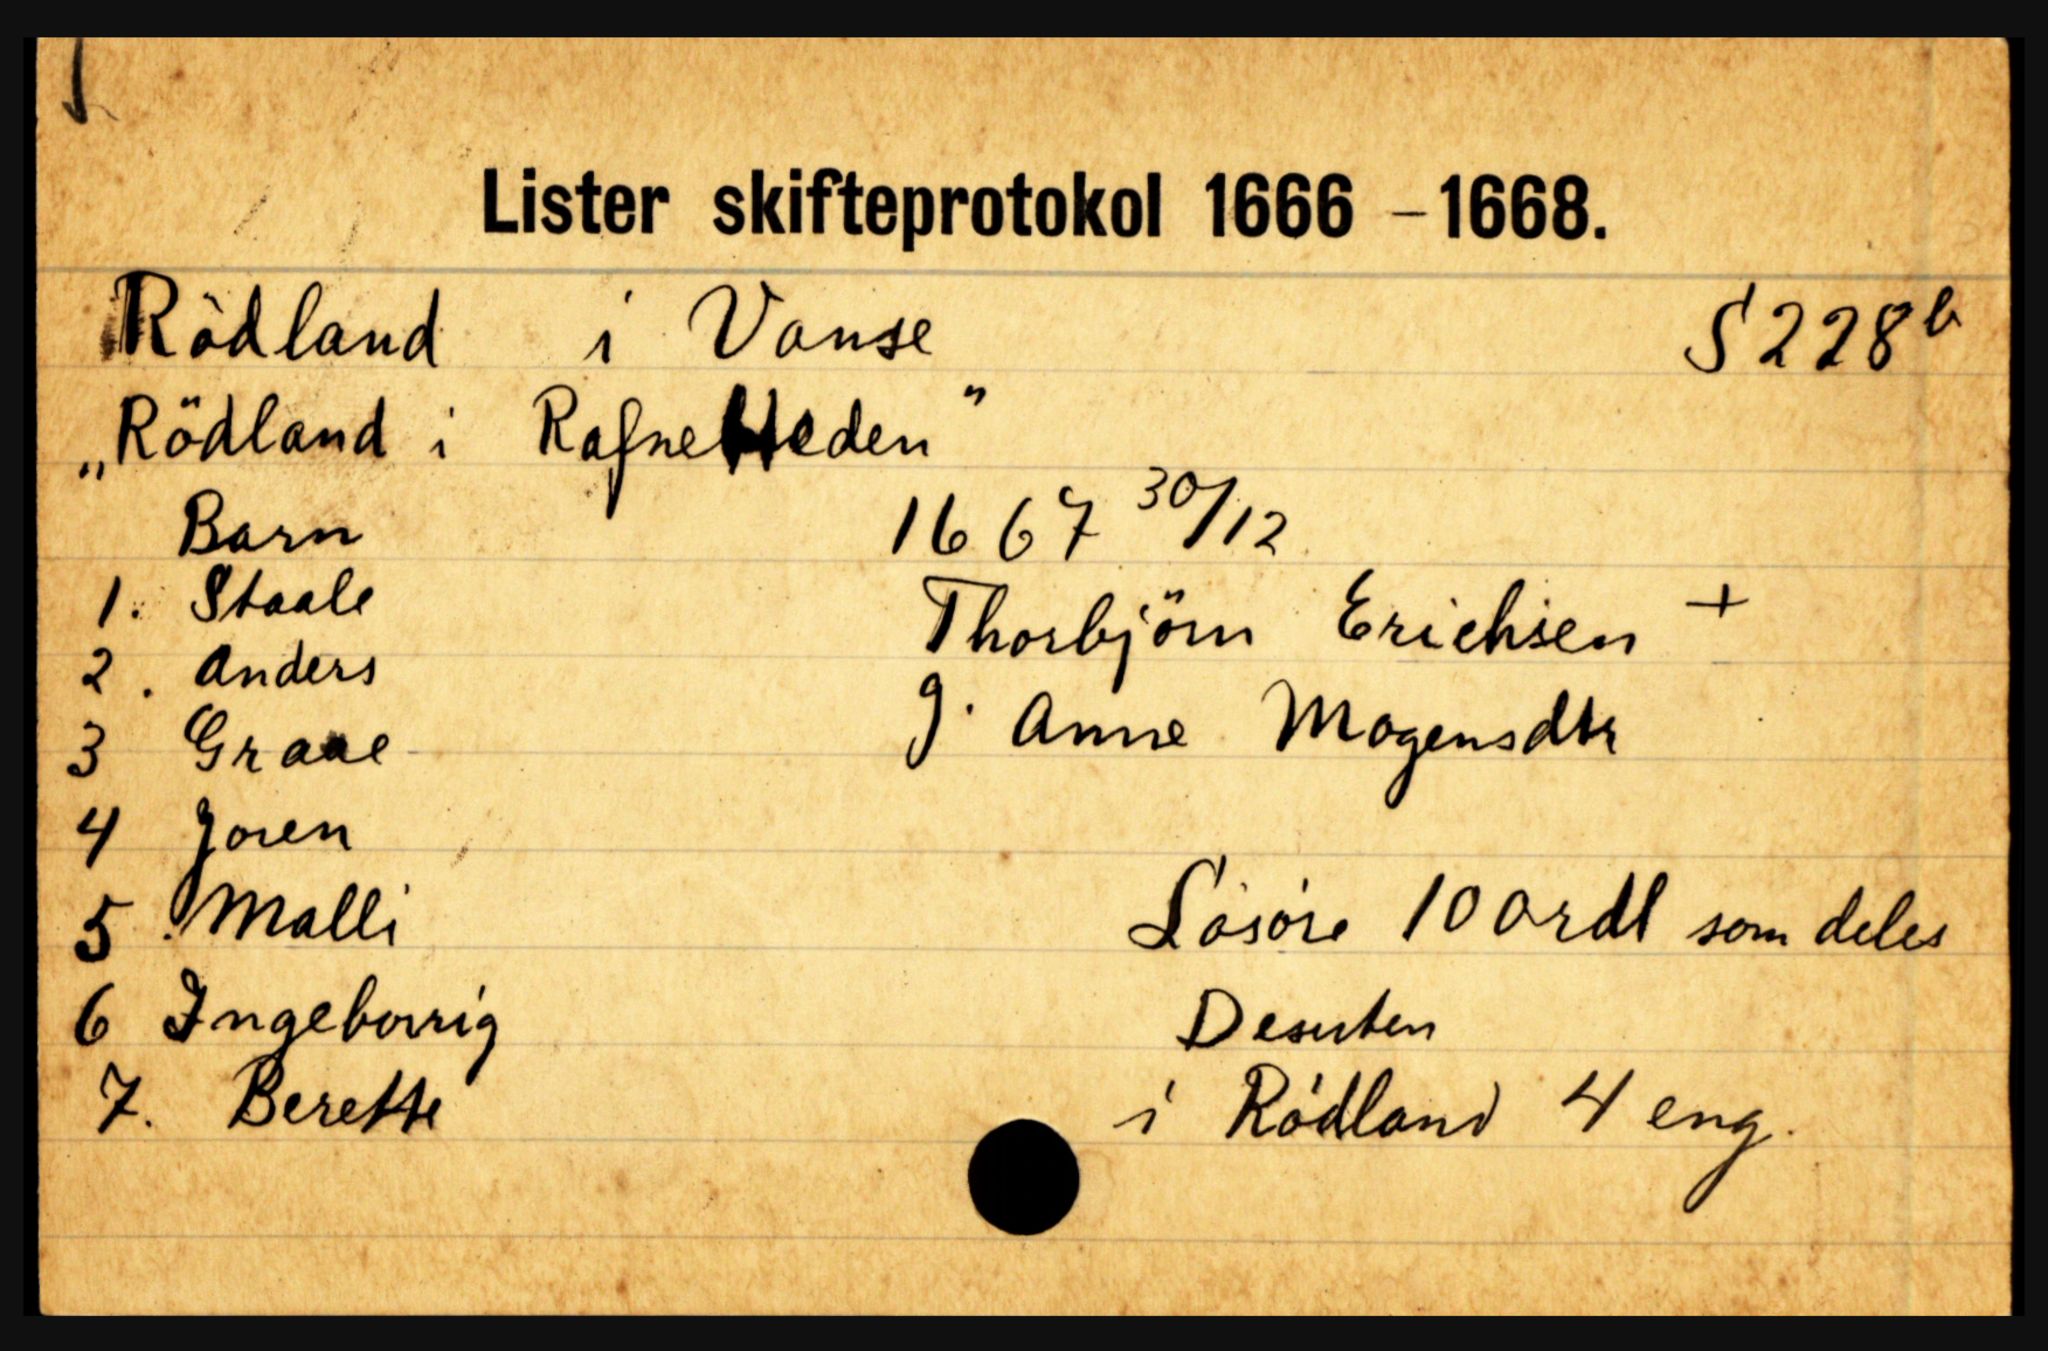 Lister skifteprotokol 1666 - 1668.
Rödland i Vanse S 228 b
„Rödland i Rafneheden"
Barn 1667 30/12
1. Staale Thorbjörn Erichsen +
2. Anders
g. Anne Mogensdtr
3 Graae
4 Joren
5. Malli Lösöre 100 rdl som deles
6 Ingeborrig Desuten
7. Berette i Rödland 4 eng.